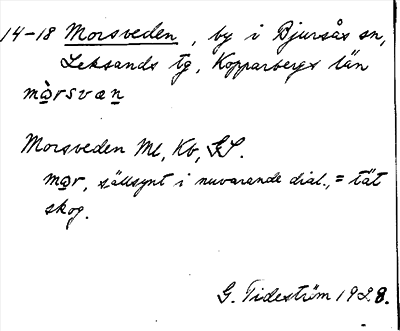 14-18 Morsveden, by i Bjursås sn,
Leksands tg, Kopparbergs län
mo̠̊rsvæn̠
Morsveden Ml, Kv, GS.
mo̠r, sällsynt i nuvarande dial., = tät
skog.
G. Tideström 1928.